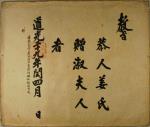 敎旨
恭人姜氏
贈淑夫人
者
道光廿九年閏四月 日